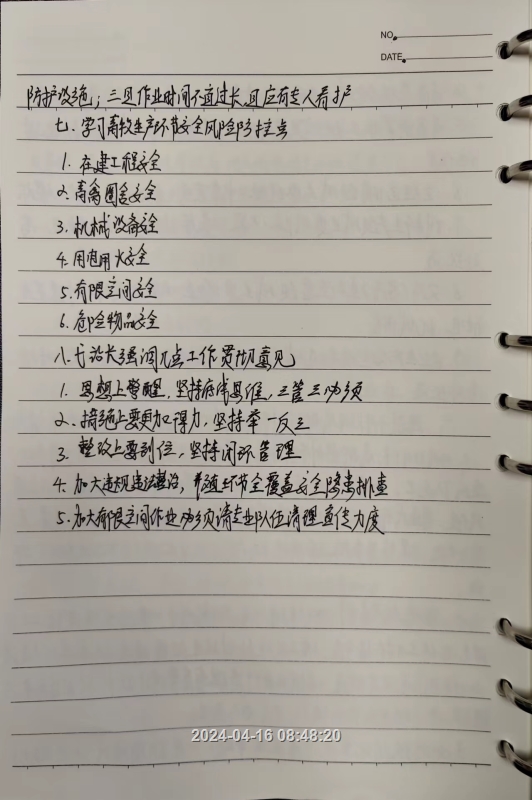 NO.
DATE.
防护设施；三是作业时间不宜过长，且应有专人看护
七、学习畜牧生产环节安全风险防控点
1. 在建工程安全
2. 畜禽圈舍安全
3. 机械设备安全
4. 用电用火安全
5. 有限空间安全
6. 危险物品安全
八、于站长强调几点工作贯彻意见
1. 思想上警醒，坚持底线思维，三管三必须
2. 措施上要更加得力，坚持举一反三
3. 整改上要到位，坚持闭环管理
4. 加大违规违法整治，环节全覆盖安全隐患排查
5. 加大有限空间作业必须请专业队伍清理宣传力度
2024-04-16 08:48:20